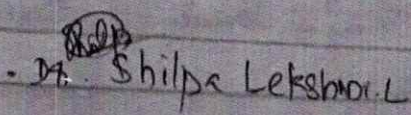 . Dr. Shilpa Lekshmi.L